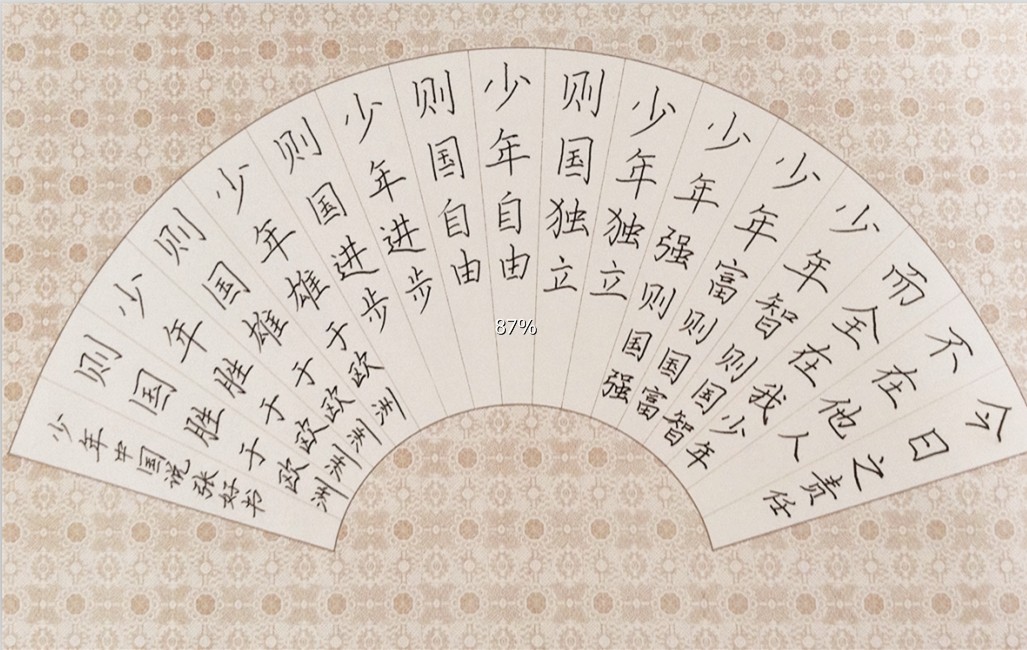 今日之责任
不在他人
而全在我少年
少年智则国智
少年富则国富
少年强则国强
少年独立
则国独立
少年自由
则国自由
少年进步
则国进步
少年雄于欧洲
则国雄于欧洲
少年胜于欧洲
则国胜于欧洲
少年中国说张好书
87%